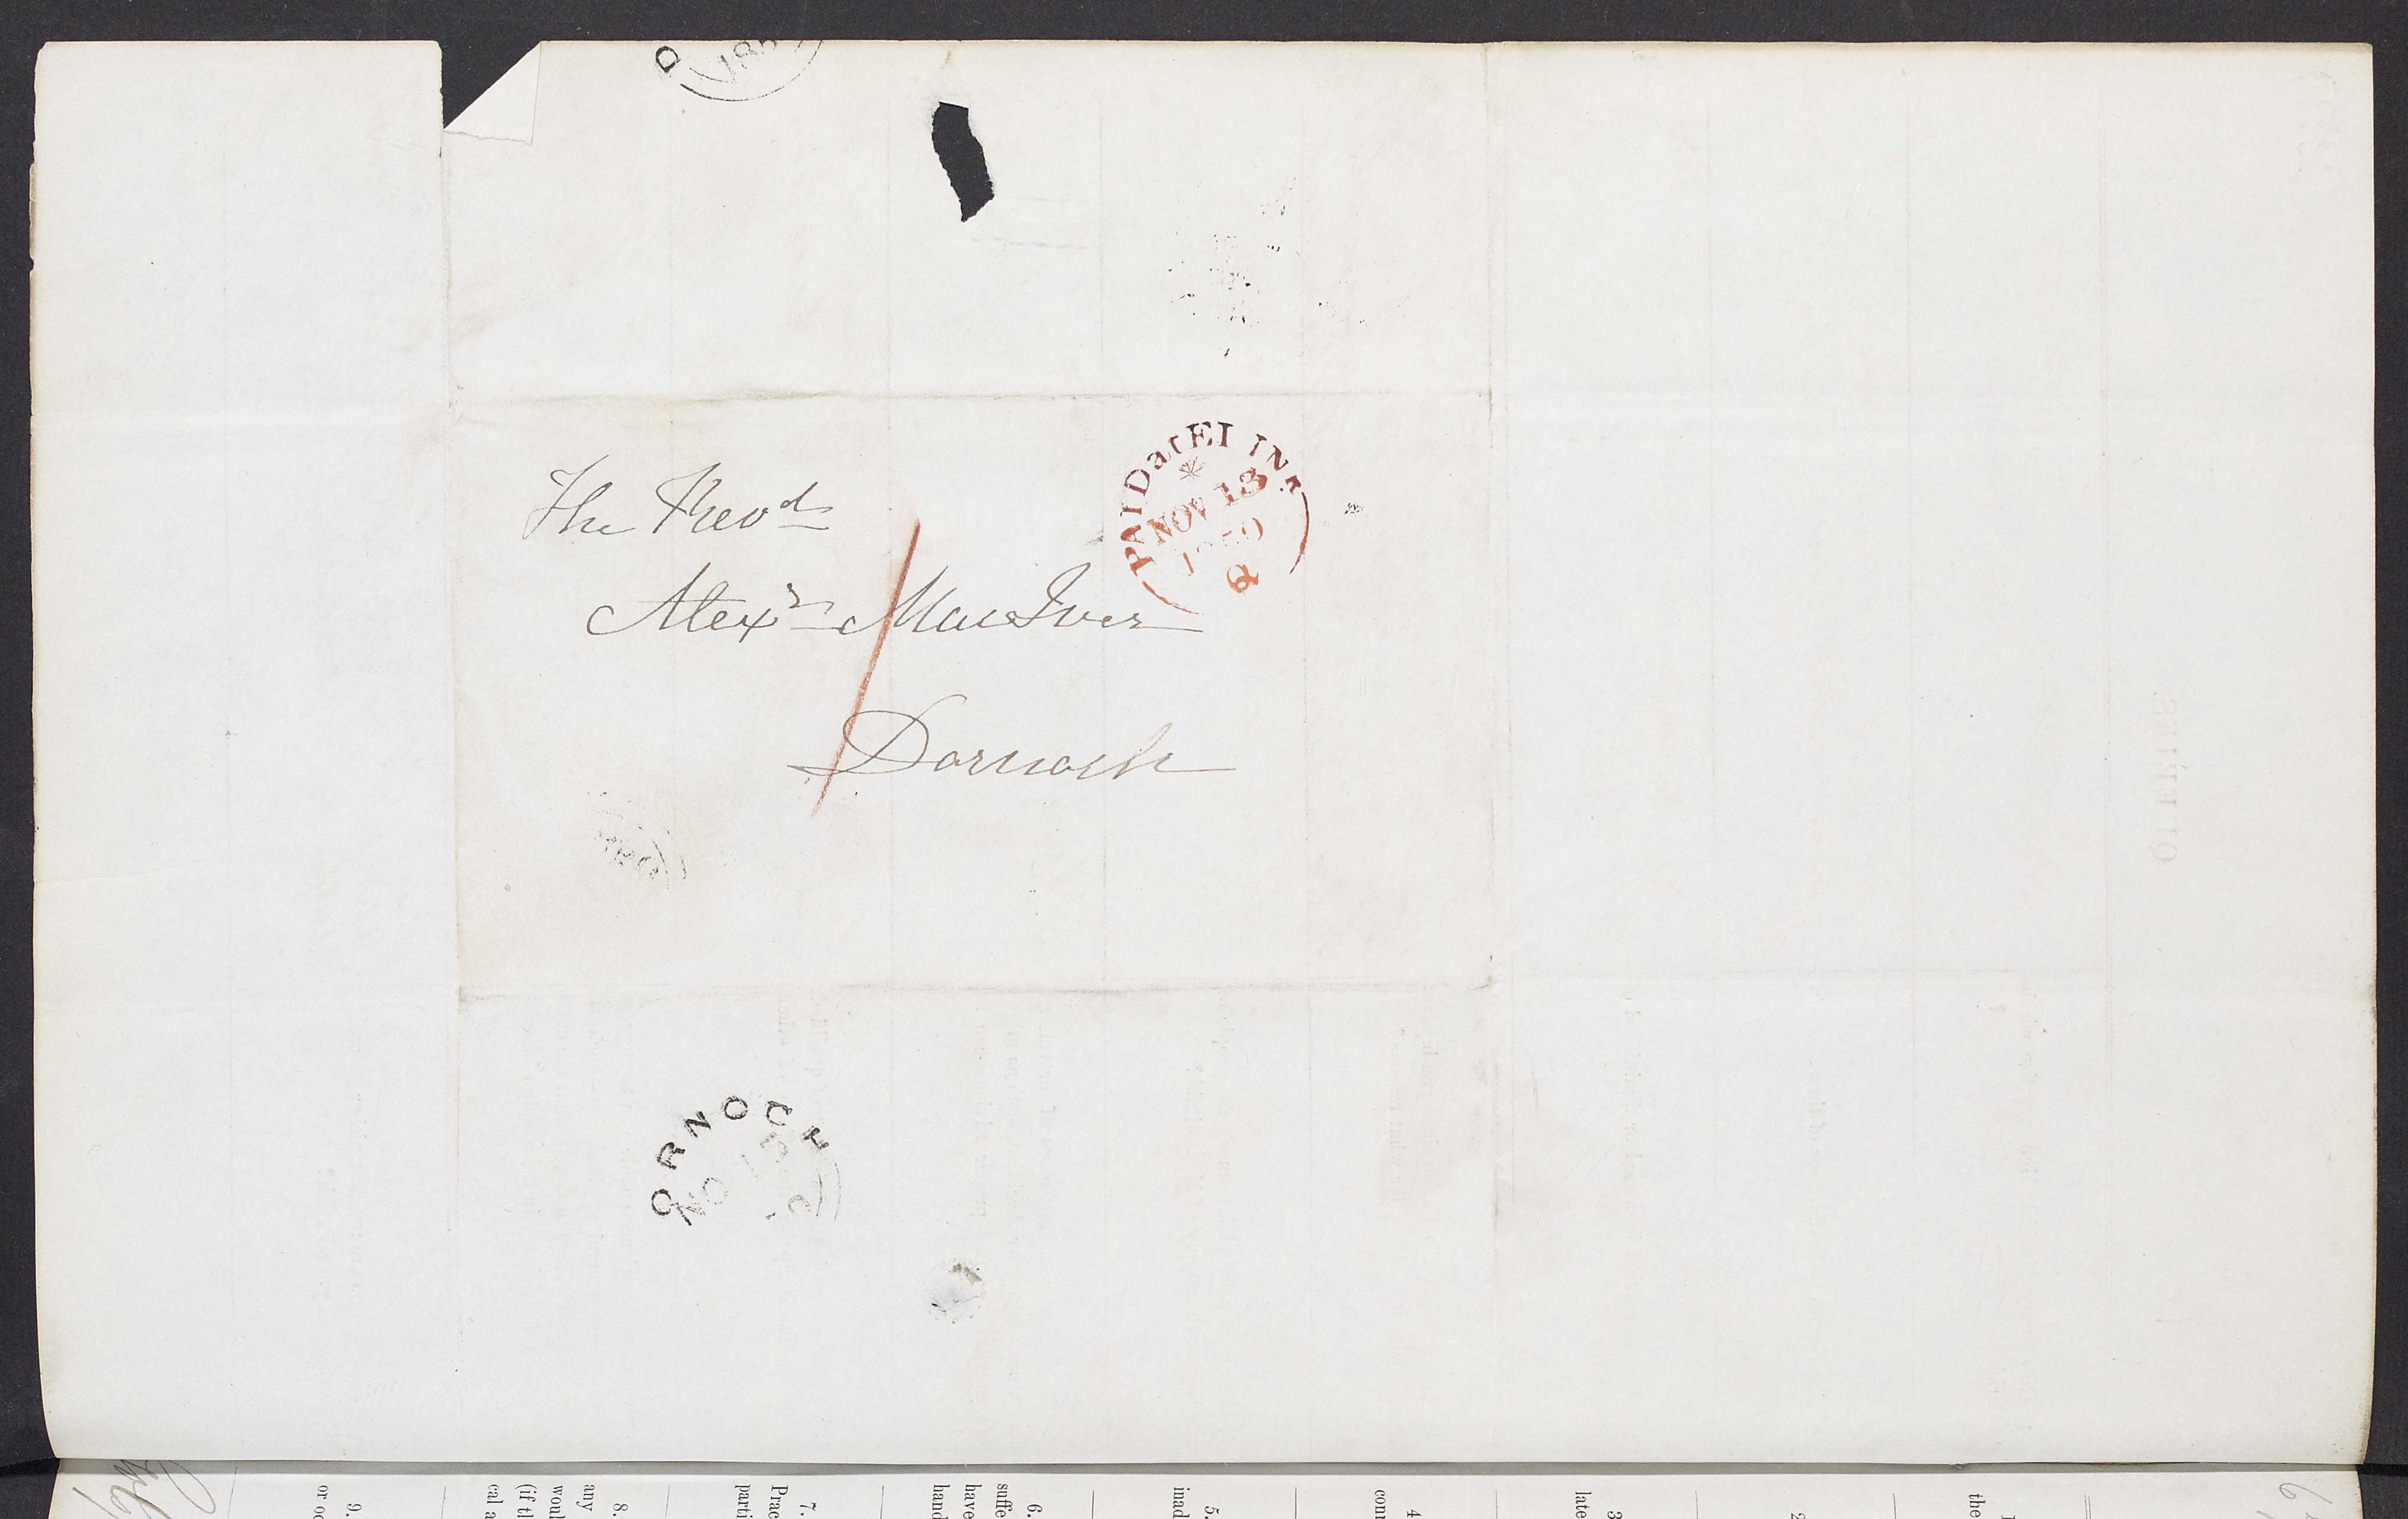 D
The Revd
Alexr MacIver
Dornoch
PAID at EDINR
NOV 13
1850
Q
ORNOCH
NO 15
9.
or oc
8.
any
woul
(if tl
cal a
7.
Prac
parti
6.
suffe
have
hand
5.
inad
4
conn
3
late
2
1
the